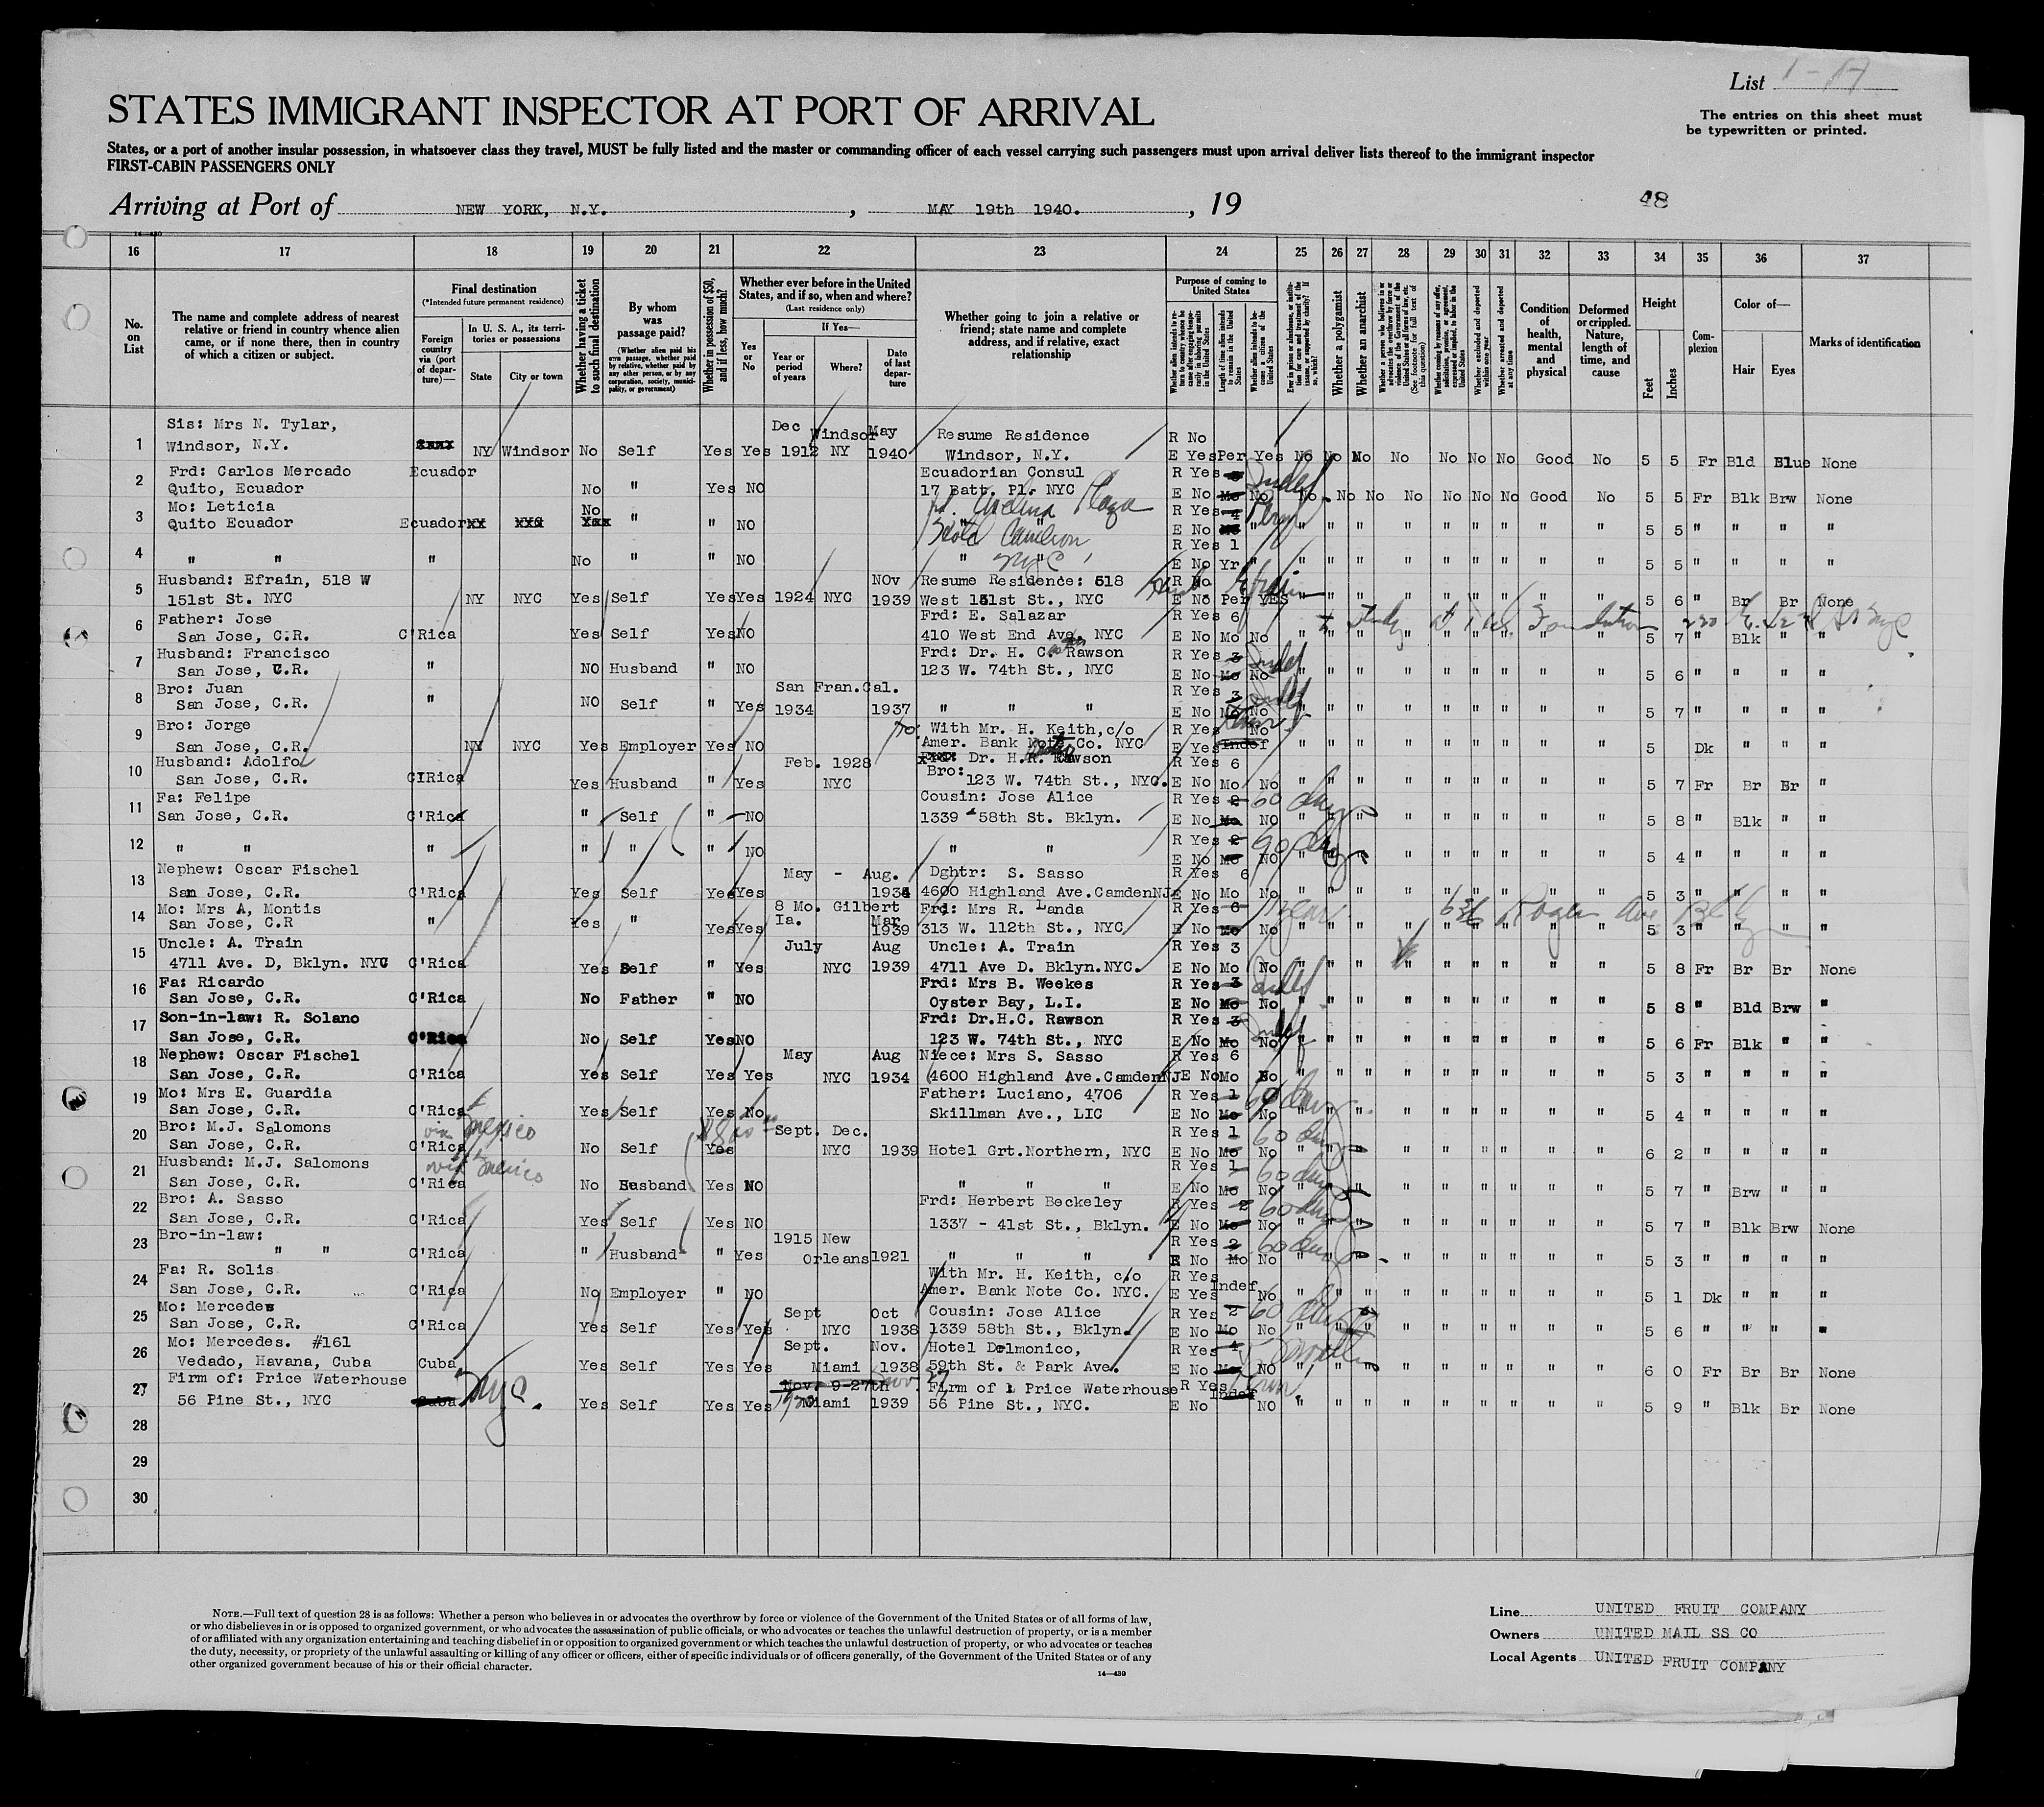 List 1-A
STATES IMMIGRANT INSPECTOR AT PORT OF ARRIVAL
The entries on this sheet must
be typewritten or printed.
States, or a port of another insular possession, in whatsoever class they travel, MUST be fully listed and the master or commanding officer of each vessel carrying such passengers must upon arrival deliver lists thereof to the immigrant inspector
FIRST-CABIN PASSENGERS ONLY
Arriving at Port of NEW YORK, N.Y. , MAY 19th 1940. , 19
48
14—430
16 17 18 19 20 21 22 23 24 25 26 27 28 29 30 31 32 33 34 35 36 37
No. on List
The name and complete address of nearest relative or friend in country whence alien came, or if none there, then in country of which a citizen or subject.
Final destination
(*Intended future permanent residence)
Foreign country via (port of departure)—
In U. S. A., its territories or possessions
State
City or town
Whether having a ticket to such final destination
By whom was passage paid?
(Whether alien paid his own passage, whether paid by relative, whether paid by any other person, or by any corporation, society, municipality, or government)
Whether in possession of $50, and if less, how much?
Whether ever before in the United States, and if so, when and where?
(Last residence only)
Yes or No
If Yes—
Year or period of years
Where?
Date of last departure
Whether going to join a relative or friend; state name and complete address, and if relative, exact relationship
Purpose of coming to United States
Whether alien intends to return to country whence he came after engaging temporarily in laboring pursuits in the United States
Length of time alien intends to remain in the United States
Whether alien intends to become a citizen of the United States
Ever in prison or almshouse, or institution for care and treatment of the insane, or supported by charity? If so, which?
Whether a polygamist
Whether an anarchist
Whether a person who believes in or advocates the overthrow by force or violence of the Government of the United States or of all forms of law, etc. (See footnote for full text of this question)
Whether coming by reasons of any offer, solicitation, promise, or agreement, expressed or implied, to labor in the United States
Whether excluded and deported within one year
Whether arrested and deported at any time
Condition of health, mental and physical
Deformed or crippled. Nature, length of time, and cause
Height
Feet
Inches
Complexion
Color of—
Hair
Eyes
Marks of identification
Sis: Mrs N. Tylar, Dec May
1 Windsor, N.Y. NY Windsor No Self Yes Yes 1912 Windsor NY 1940 Resume Residence Windsor, N.Y. R No E Yes Per Yes No No No No No No No Good No 5 5 Fr Bld Blue None
2 Frd: Carlos Mercado Quito, Ecuador Ecuador No " Yes NO Ecuadorian Consul 17 Batt. Pl. NYC R Yes E No Mo No Indef No No No No No No No Good No 5 5 Fr Blk Brw None
3 Mo: Leticia Quito Ecuador Ecuador No " " NO Hotel NYC R Yes 4 E No " " " " " " " " " 5 5 " " " "
4 " " " No " " NO " " R Yes 1 E No Yr " " " " " " " " " " 5 5 " " " "
5 Husband: Efrain, 518 W 151st St. NYC NY NYC Yes Self Yes Yes 1924 NYC Nov 1939 Resume Residence: 518 West 151st St., NYC R No E No Per YES Efrain " " " " " " " " " 5 6 " Br Br None
6 Father: Jose San Jose, C.R. C'Rica Yes Self Yes NO Frd: E. Salazar 410 West End Ave. NYC R Yes 6 E No Mo No to study at Foundation 230 NYC 5 7 " Blk " "
7 Husband: Francisco San Jose, C.R. " NO Husband " NO Frd: Dr. H. C. Rawson 123 W. 74th St., NYC R Yes 3 E No Mo No Indef " " " " " " " " " 5 6 " " " "
8 Bro: Juan San Jose, C.R. " NO Self " Yes San Fran.Cal. 1934 1937 " " " R Yes 3 E No Mo No Indef " " " " " " " " " 5 7 " " " "
9 Bro: Jorge San Jose, C.R. NY NYC Yes Employer Yes NO With Mr. H. Keith,c/o Amer. Bank Note Co. NYC R Yes E Yes Indef No " " " " " " " " " 5 Dk " " "
10 Husband: Adolfo San Jose, C.R. CIRica Yes Husband " Yes Feb. 1928 NYC Bro: Dr. H.R. Rawson 123 W. 74th St., NYC. R Yes 6 E No Mo No " " " " " " " " " 5 7 Fr Br Br "
11 Fa: Felipe San Jose, C.R. C'Rica " Self " NO Cousin: Jose Alice 1339 58th St. Bklyn. R Yes 2 E No Mo NO 60 days " " " " " " " " " 5 8 " Blk " "
12 " " " " " " NO " " R Yes 2 E No Mo NO 90 days " " " " " " " " " 5 4 " " " "
13 Nephew: Oscar Fischel San Jose, C.R. C'Rica Yes Self Yes Yes May - Aug. 1934 Dghtr: S. Sasso 4600 Highland Ave.CamdenNJ R Yes 6 E No Mo No " " " " " " " " " 5 3 " " " "
14 Mo: Mrs A, Montis San Jose, C.R " Yes " Yes Yes 8 Mo. Gilbert Ia. Mar 1939 Frd: Mrs R. Landa 313 W. 112th St., NYC R Yes 6 E No Mo No 1 year 636 Ave 5 3 " " " "
15 Uncle: A. Train 4711 Ave. D, Bklyn. NYC C'Rica Yes Self " Yes July NYC Aug 1939 Uncle: A. Train 4711 Ave D. Bklyn.NYC. R Yes 3 E No Mo No " " " " " " " " " 5 8 Fr Br Br None
16 Fa: Ricardo San Jose, C.R. C'Rica No Father " NO Frd: Mrs B. Weekes Oyster Bay, L.I. R Yes 3 E No Mo No Indef " " " " " " " " " 5 8 " Bld Brw "
17 Son-in-law: R. Solano San Jose, C.R. C'Rica No Self Yes NO Frd: Dr.H.C. Rawson 123 W. 74th St., NYC R Yes 3 E No Mo No Indef " " " " " " " " " 5 6 Fr Blk " "
18 Nephew: Oscar Fischel San Jose, C.R. C'Rica Yes Self Yes Yes May NYC Aug 1934 Niece: Mrs S. Sasso 4600 Highland Ave.CamdenNJ R Yes 6 E No Mo No " " " " " " " " " 5 3 " " " "
19 Mo: Mrs E. Guardia San Jose, C.R. C'Rica Yes Self Yes No Father: Luciano, 4706 Skillman Ave., LIC R Yes 1 E No Mo No 60 days " " " " " " " " " 5 4 " " " "
20 Bro: M.J. Salomons San Jose, C.R. C'Rica via Mexico No Self Yes Sept. Dec. NYC 1939 Hotel Grt.Northern, NYC R Yes 1 E No Mo No 60 days " " " " " " " " " 6 2 " " " "
21 Husband: M.J. Salomons San Jose, C.R. C'Rica via Mexico No Husband Yes NO " " " R Yes 1 E No Mo No 60 days " " " " " " " " " 5 7 " Brw " "
22 Bro: A. Sasso San Jose, C.R. C'Rica Yes Self Yes NO Frd: Herbert Beckeley 1337 - 41st St., Bklyn. R Yes 2 E No Mo No 60 days " " " " " " " " " 5 7 " Blk Brw None
23 Bro-in-law: " " C'Rica " Husband " Yes 1915 New Orleans 1921 " " " R Yes 2 E No Mo No 60 days " " " " " " " " " 5 3 " " " "
24 Fa: R. Solis San Jose, C.R. C'Rica No Employer " NO With Mr. H. Keith, c/o Amer. Bank Note Co. NYC. R Yes E Yes Indef No " " " " " " " " " 5 1 Dk " " "
25 Mo: Mercedes San Jose, C.R. C'Rica Yes Self Yes Yes Sept NYC Oct 1938 Cousin: Jose Alice 1339 58th St., Bklyn. R Yes 2 E No Mo No 60 days " " " " " " " " " 5 6 " " " "
26 Mo: Mercedes. #161 Vedado, Havana, Cuba Cuba Yes Self Yes Yes Sept. Miami Nov. 1938 Hotel Delmonico, 59th St. & Park Ave. R Yes 4 E No Mo NO " " " " " " " " " 6 0 Fr Br Br None
27 Firm of: Price Waterhouse 56 Pine St., NYC Cuba NYC. Yes Self Yes Yes Nov. 9-27th Miami 1939 Nov 27 Firm of Price Waterhouse 56 Pine St., NYC. R Yes E No Indef NO " " " " " " " " " 5 9 " Blk Br None
28
29
30
NOTE.—Full text of question 28 is as follows: Whether a person who believes in or advocates the overthrow by force or violence of the Government of the United States or of all forms of law,
or who disbelieves in or is opposed to organized government, or who advocates the assassination of public officials, or who advocates or teaches the unlawful destruction of property, or is a member
of or affiliated with any organization entertaining and teaching disbelief in or opposition to organized government or which teaches the unlawful destruction of property, or who advocates or teaches
the duty, necessity, or propriety of the unlawful assaulting or killing of any officer or officers, either of specific individuals or of officers generally, of the Government of the United States or of any
other organized government because of his or their official character.
14—430
Line UNITED FRUIT COMPANY
Owners UNITED MAIL SS CO
Local Agents UNITED FRUIT COMPANY